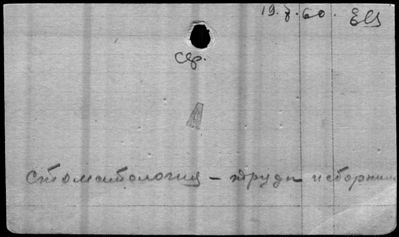 19.8.60.
ср.
Стоматология – труды и сборники